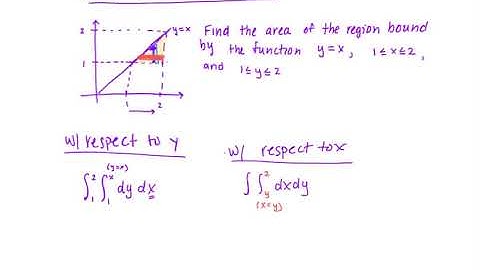 2
1
1
2
y=x
Find the area of the region bound
by the function y=x, 1≤x≤2,
and 1≤y≤2
w/ respect to y
(y=x)
∫₁² ∫₁ˣ dy dx
w/ respect to x
∫ ∫ᵧ² dxdy
(x=y)